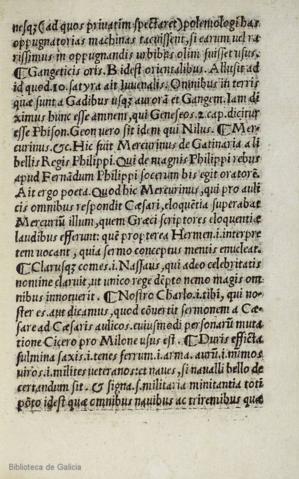 nesq̃(ad quos priuatim spectaret)polemologi has
oppugnatorias machinas tacuissent, si earum uel ra
rissimus in oppugnandis urbibus olim fuisset usus.
¶Gangeticis oris. B idest orientalibus. Allusit ad
id quod.10. satyra ait Iuuenalis. Omnibus in terris
quæ sunt a Gadibus usq; aurorã et Gangem. Iam di
ximus hunc esse amnem, qui Geneseos.2.cap.dicitur
esse Phison. Geon uero sit idem qui Nilus. ¶Mer-
curinus.&c. Hic fuit Mercurinus de Gatinaria a li
bellis Regis Philippi. Qui de magnis Philippi rebus
apud Fernãdum Philippi socerum bis egit oratorẽ.
Ait ergo poeta. Quod hic Mercurinus, qui pro auli
cis omnibus respondit Cæsari, eloquẽtia superabat
Mercuriũ illum, quem Græci scriptores eloquentiæ
laudibus efferunt: quẽ propterea Hermen.i.interpre
tem uocant, quia sermo conceptus mentis enucleat.
¶Clarusq; comes.i.Nassaus, qui adeo celebritatis
nomine claruit, ut unico rege dẽpto nemo magis om
nibus innotuerit. ¶Nostro Charlo.i.tibi, qui no-
ster es. aut dicamus, quod cõuertit sermonem a Cæ-
sare ad Cæsaris aulicos. cuiusmodi personarũ muta
tione Cicero pro Milone usus est. ¶Duris efficta
fulmina saxis.i.tenes ferrum.i.arma. aurũ.i.nimos
uiros.i.milites ueteranos: et naues, si nauali bello de
certandum sit. & signa.s.militaria minitantia toti
põto idest quæ omnibus nauibus ac triremibus quæ
Biblioteca de Galicia